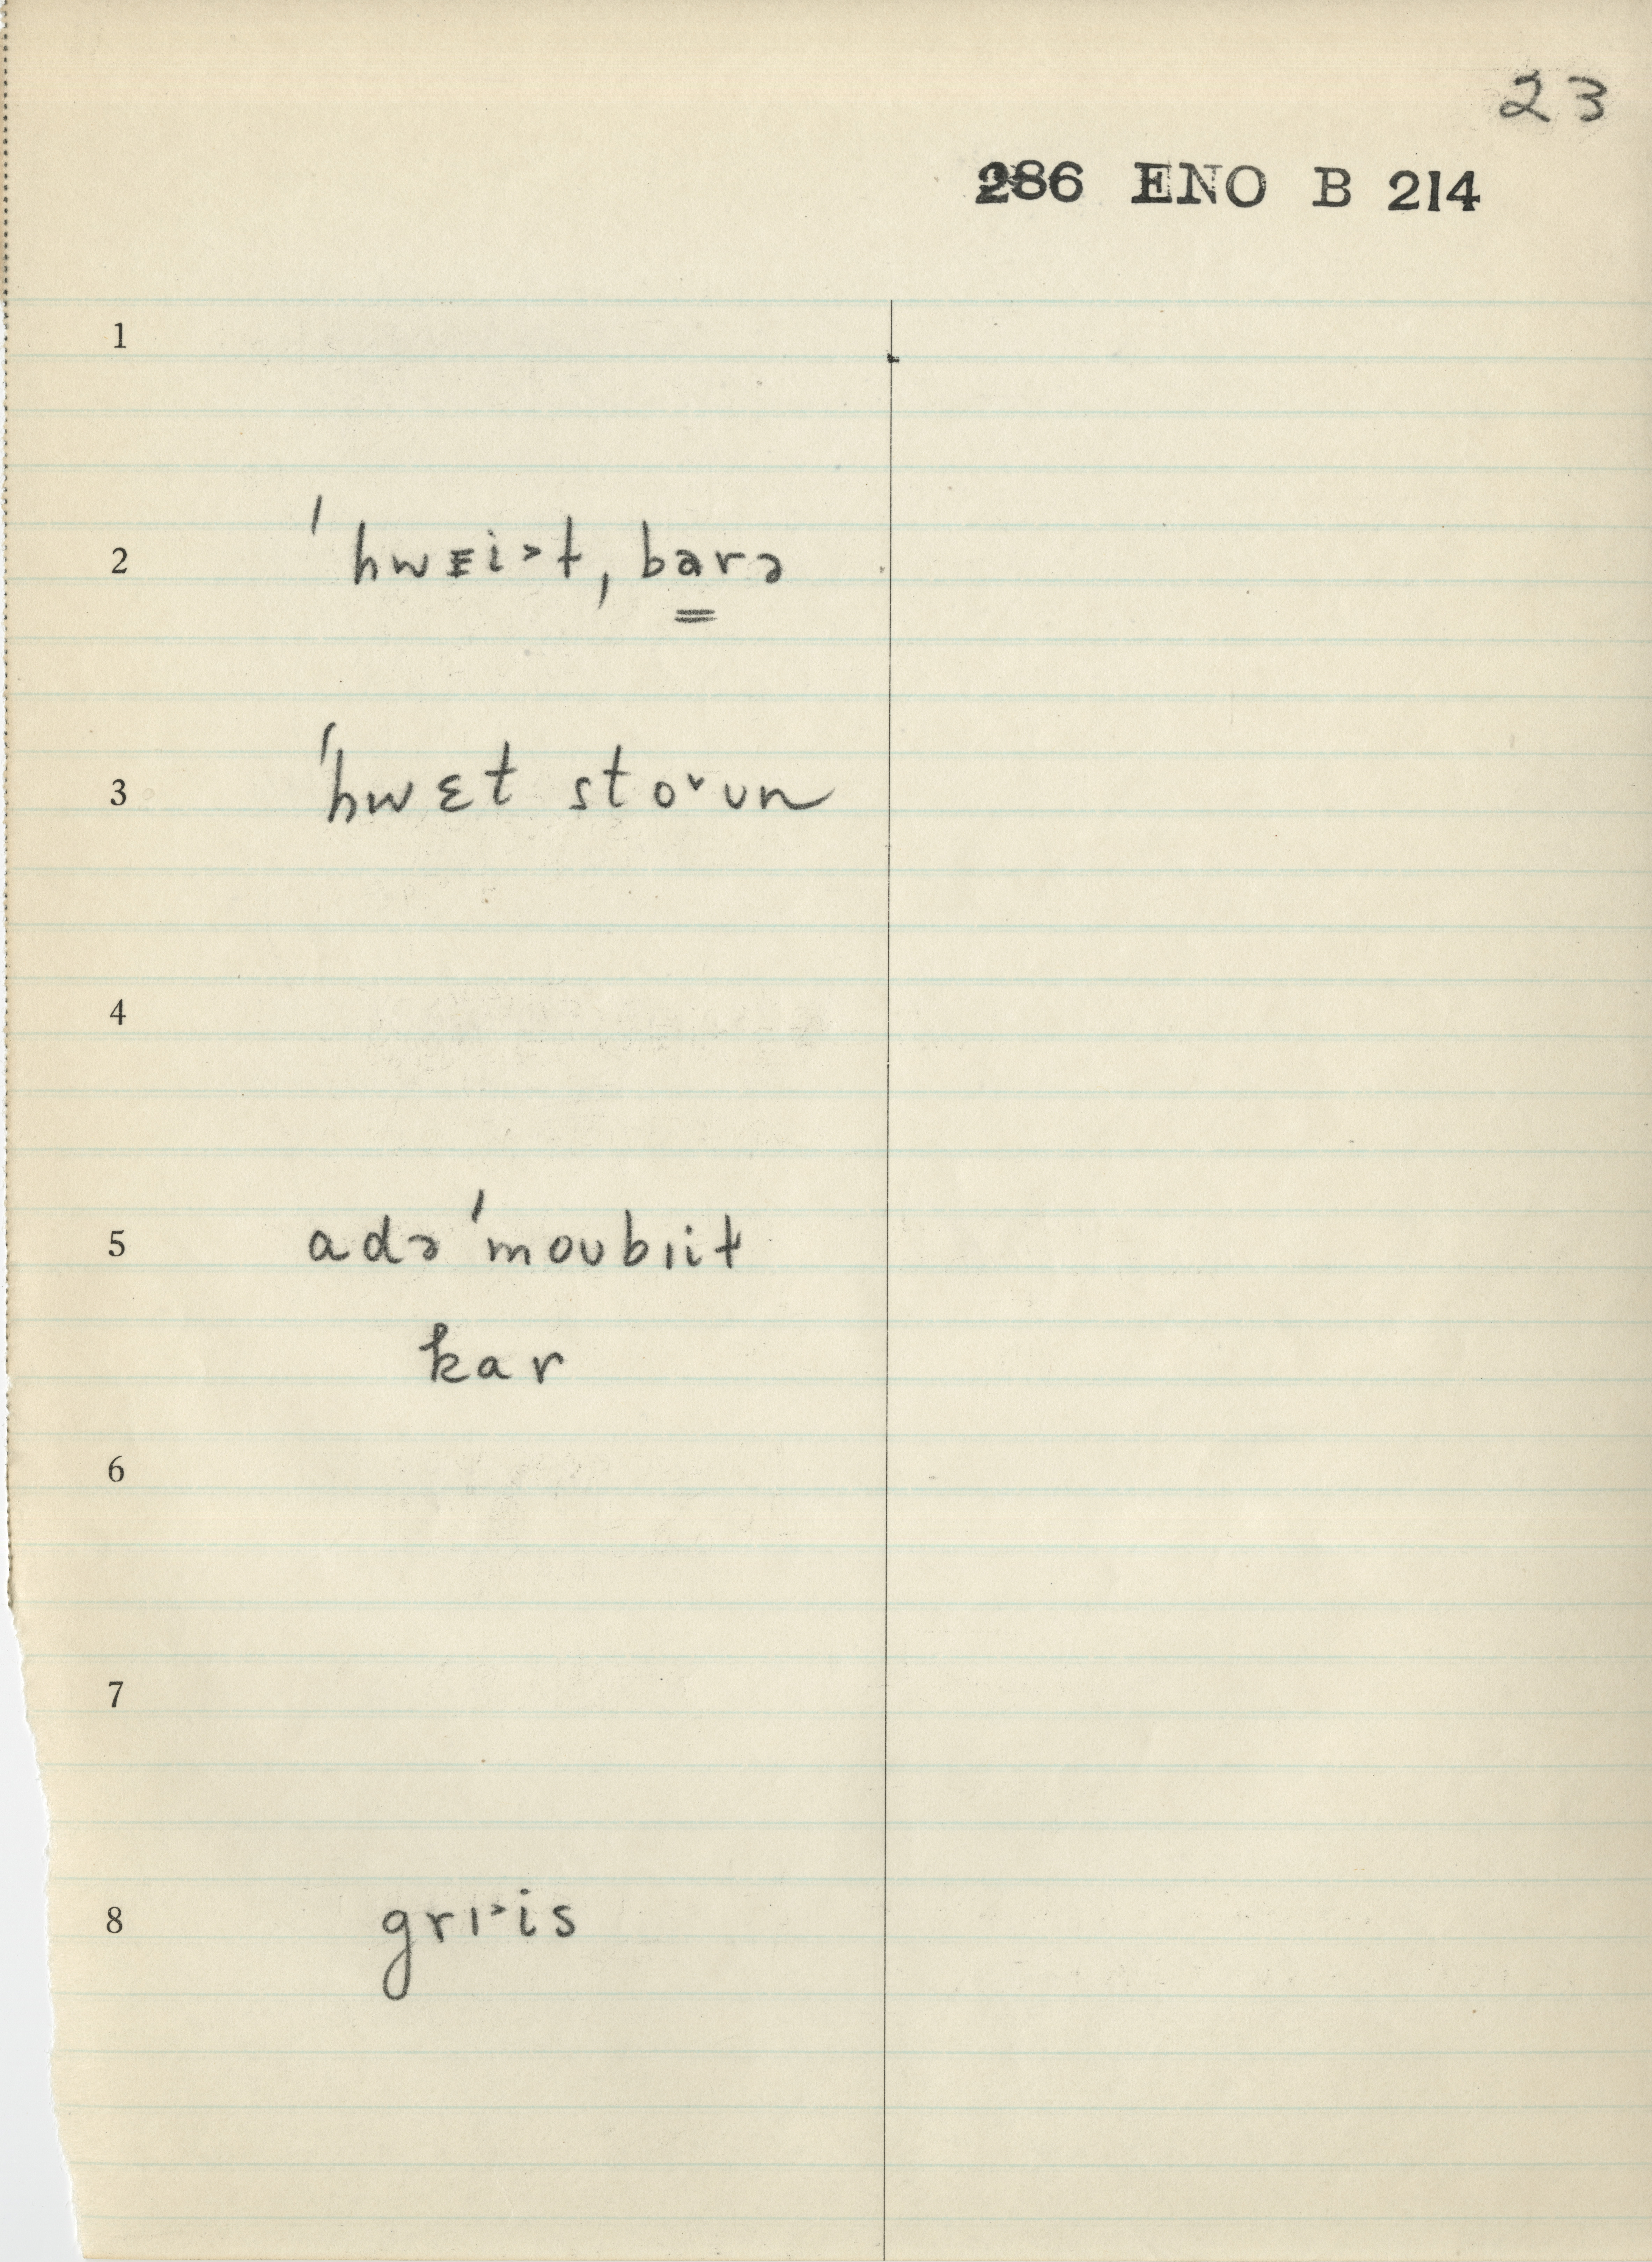 23
286 ENO B 214
1
2 ˈhwɛi˃t, barə
3 ˈhwɛt stoˇʊn
4
5 adə ˈmoʊbɪit
kar
6
7
8 grɪ˃is